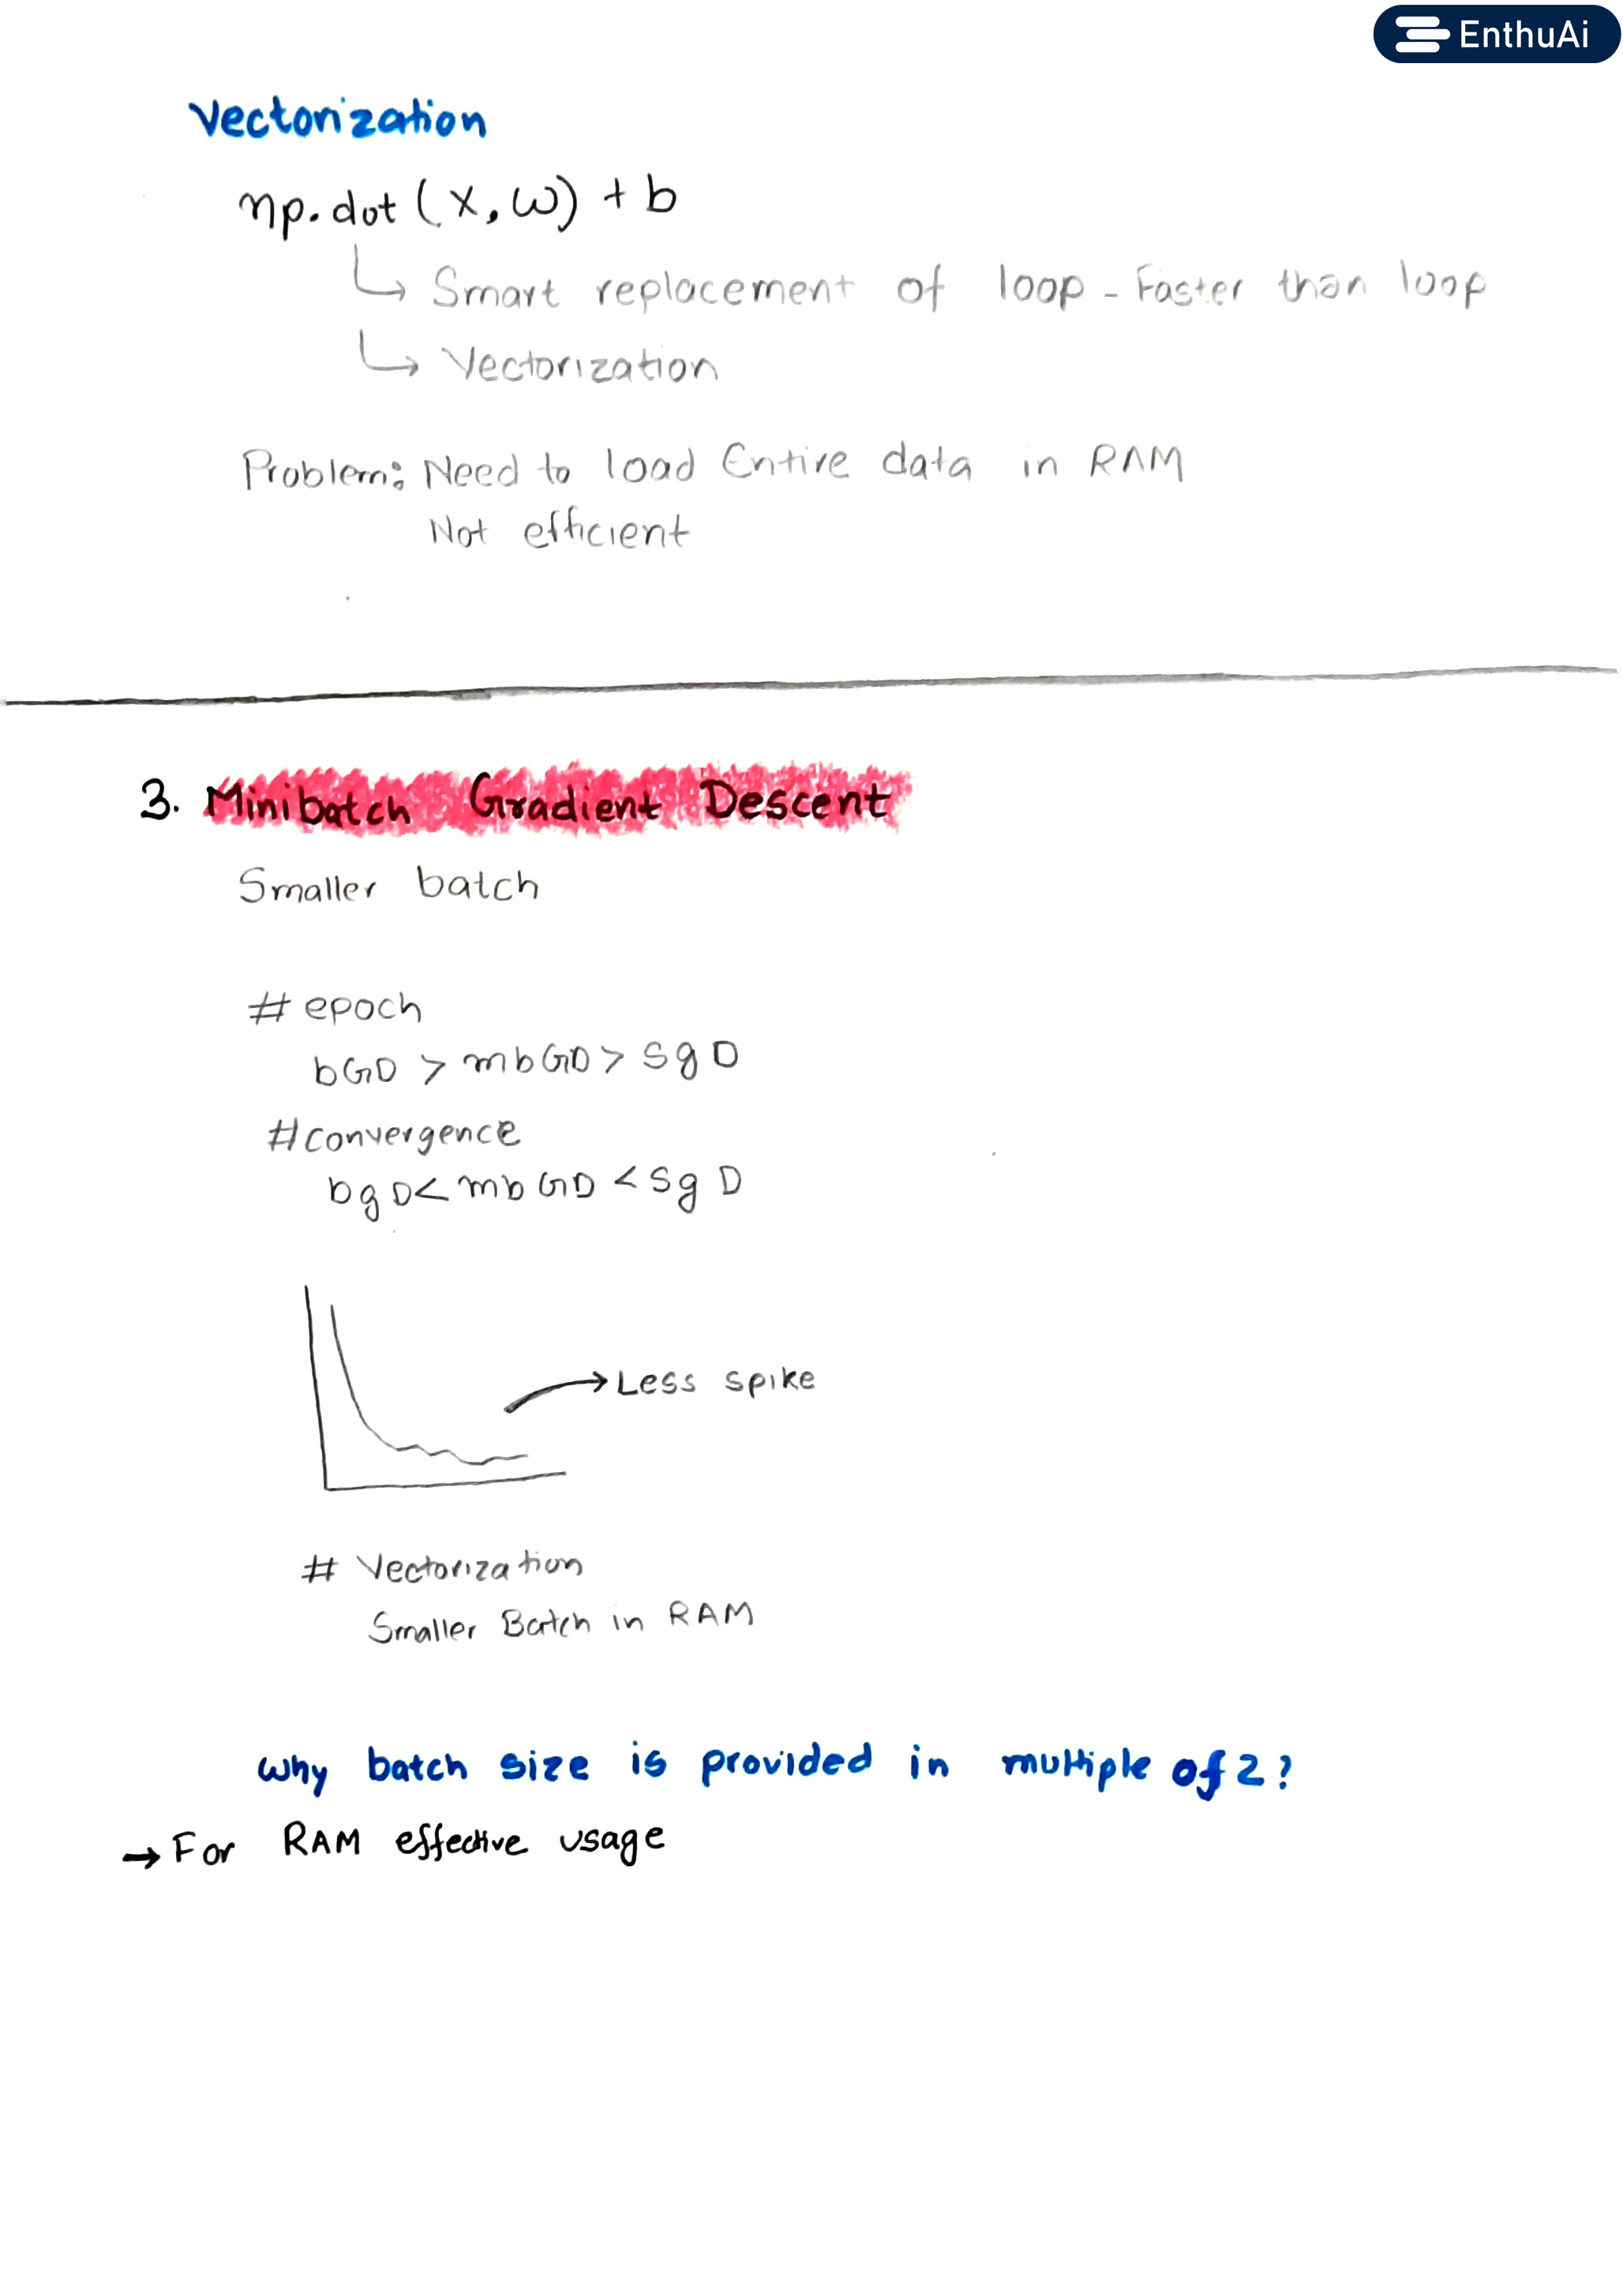 EnthuAi
Vectorization
np.dot (X, W) + b
↳ Smart replacement of loop - Faster than loop
↳ Vectorization
Problem: Need to load Entire data in RAM
Not efficient
3. Minibatch Gradient Descent
Smaller batch
# epoch
bGD > mbGD > SgD
#convergence
bgD < mbGD < SgD
→ Less spike
# Vectorization
Smaller Batch in RAM
Why batch size is provided in multiple of 2?
→ For RAM effective usage